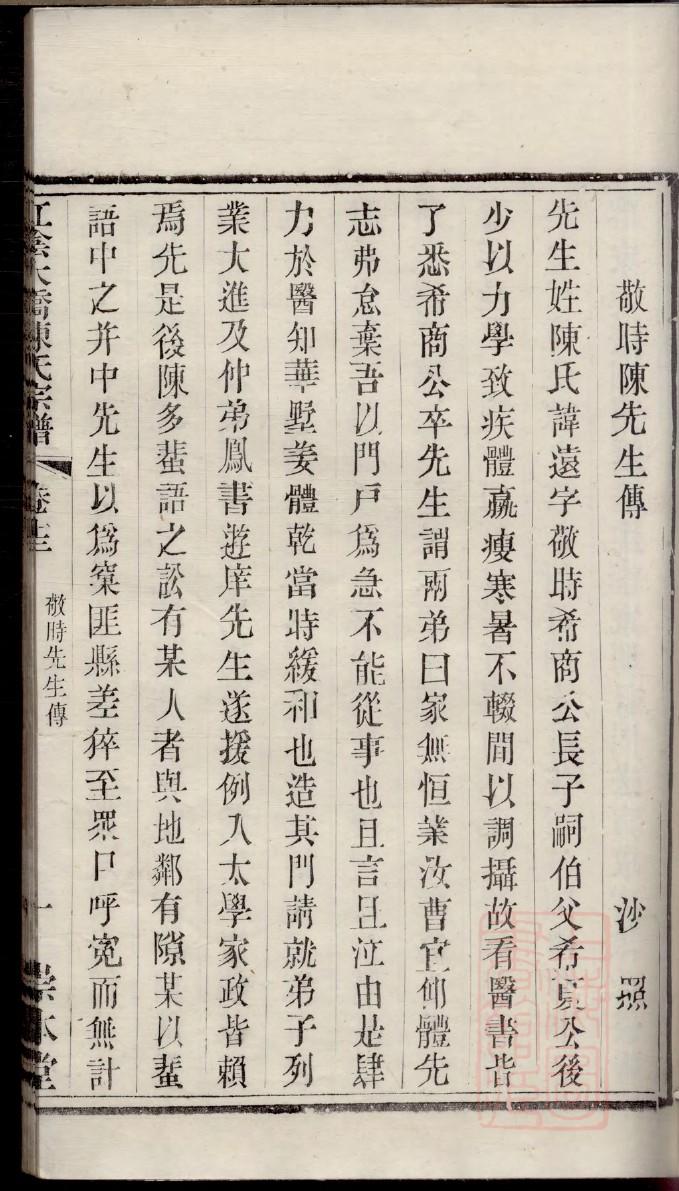 敬時陳先生傳 沙照
先生姓陳氏諱遠字敬時希商公長子嗣伯父希夏公後
少以力學致疾體羸瘦寒暑不輟間以調攝故看醫書皆
了悉希商公卒先生謂兩弟曰家無恒業汝曹宜仰體先
志弗怠棄吾以門戸爲急不能從事也且言且泣由是肆
力於醫知華墅姜體乾當時緩和也造其門請就弟子列
業大進及仲弟鳳書遊庠先生遂援例入太學家政皆賴
焉先是後陳多蜚語之訟有某人者與地鄰有隙某以蜚
語中之并中先生以爲窠匪縣差猝至眾口呼寃而無計
江陰大橋陳氏宗譜 卷十三 敬時先生傳 一 崇本堂